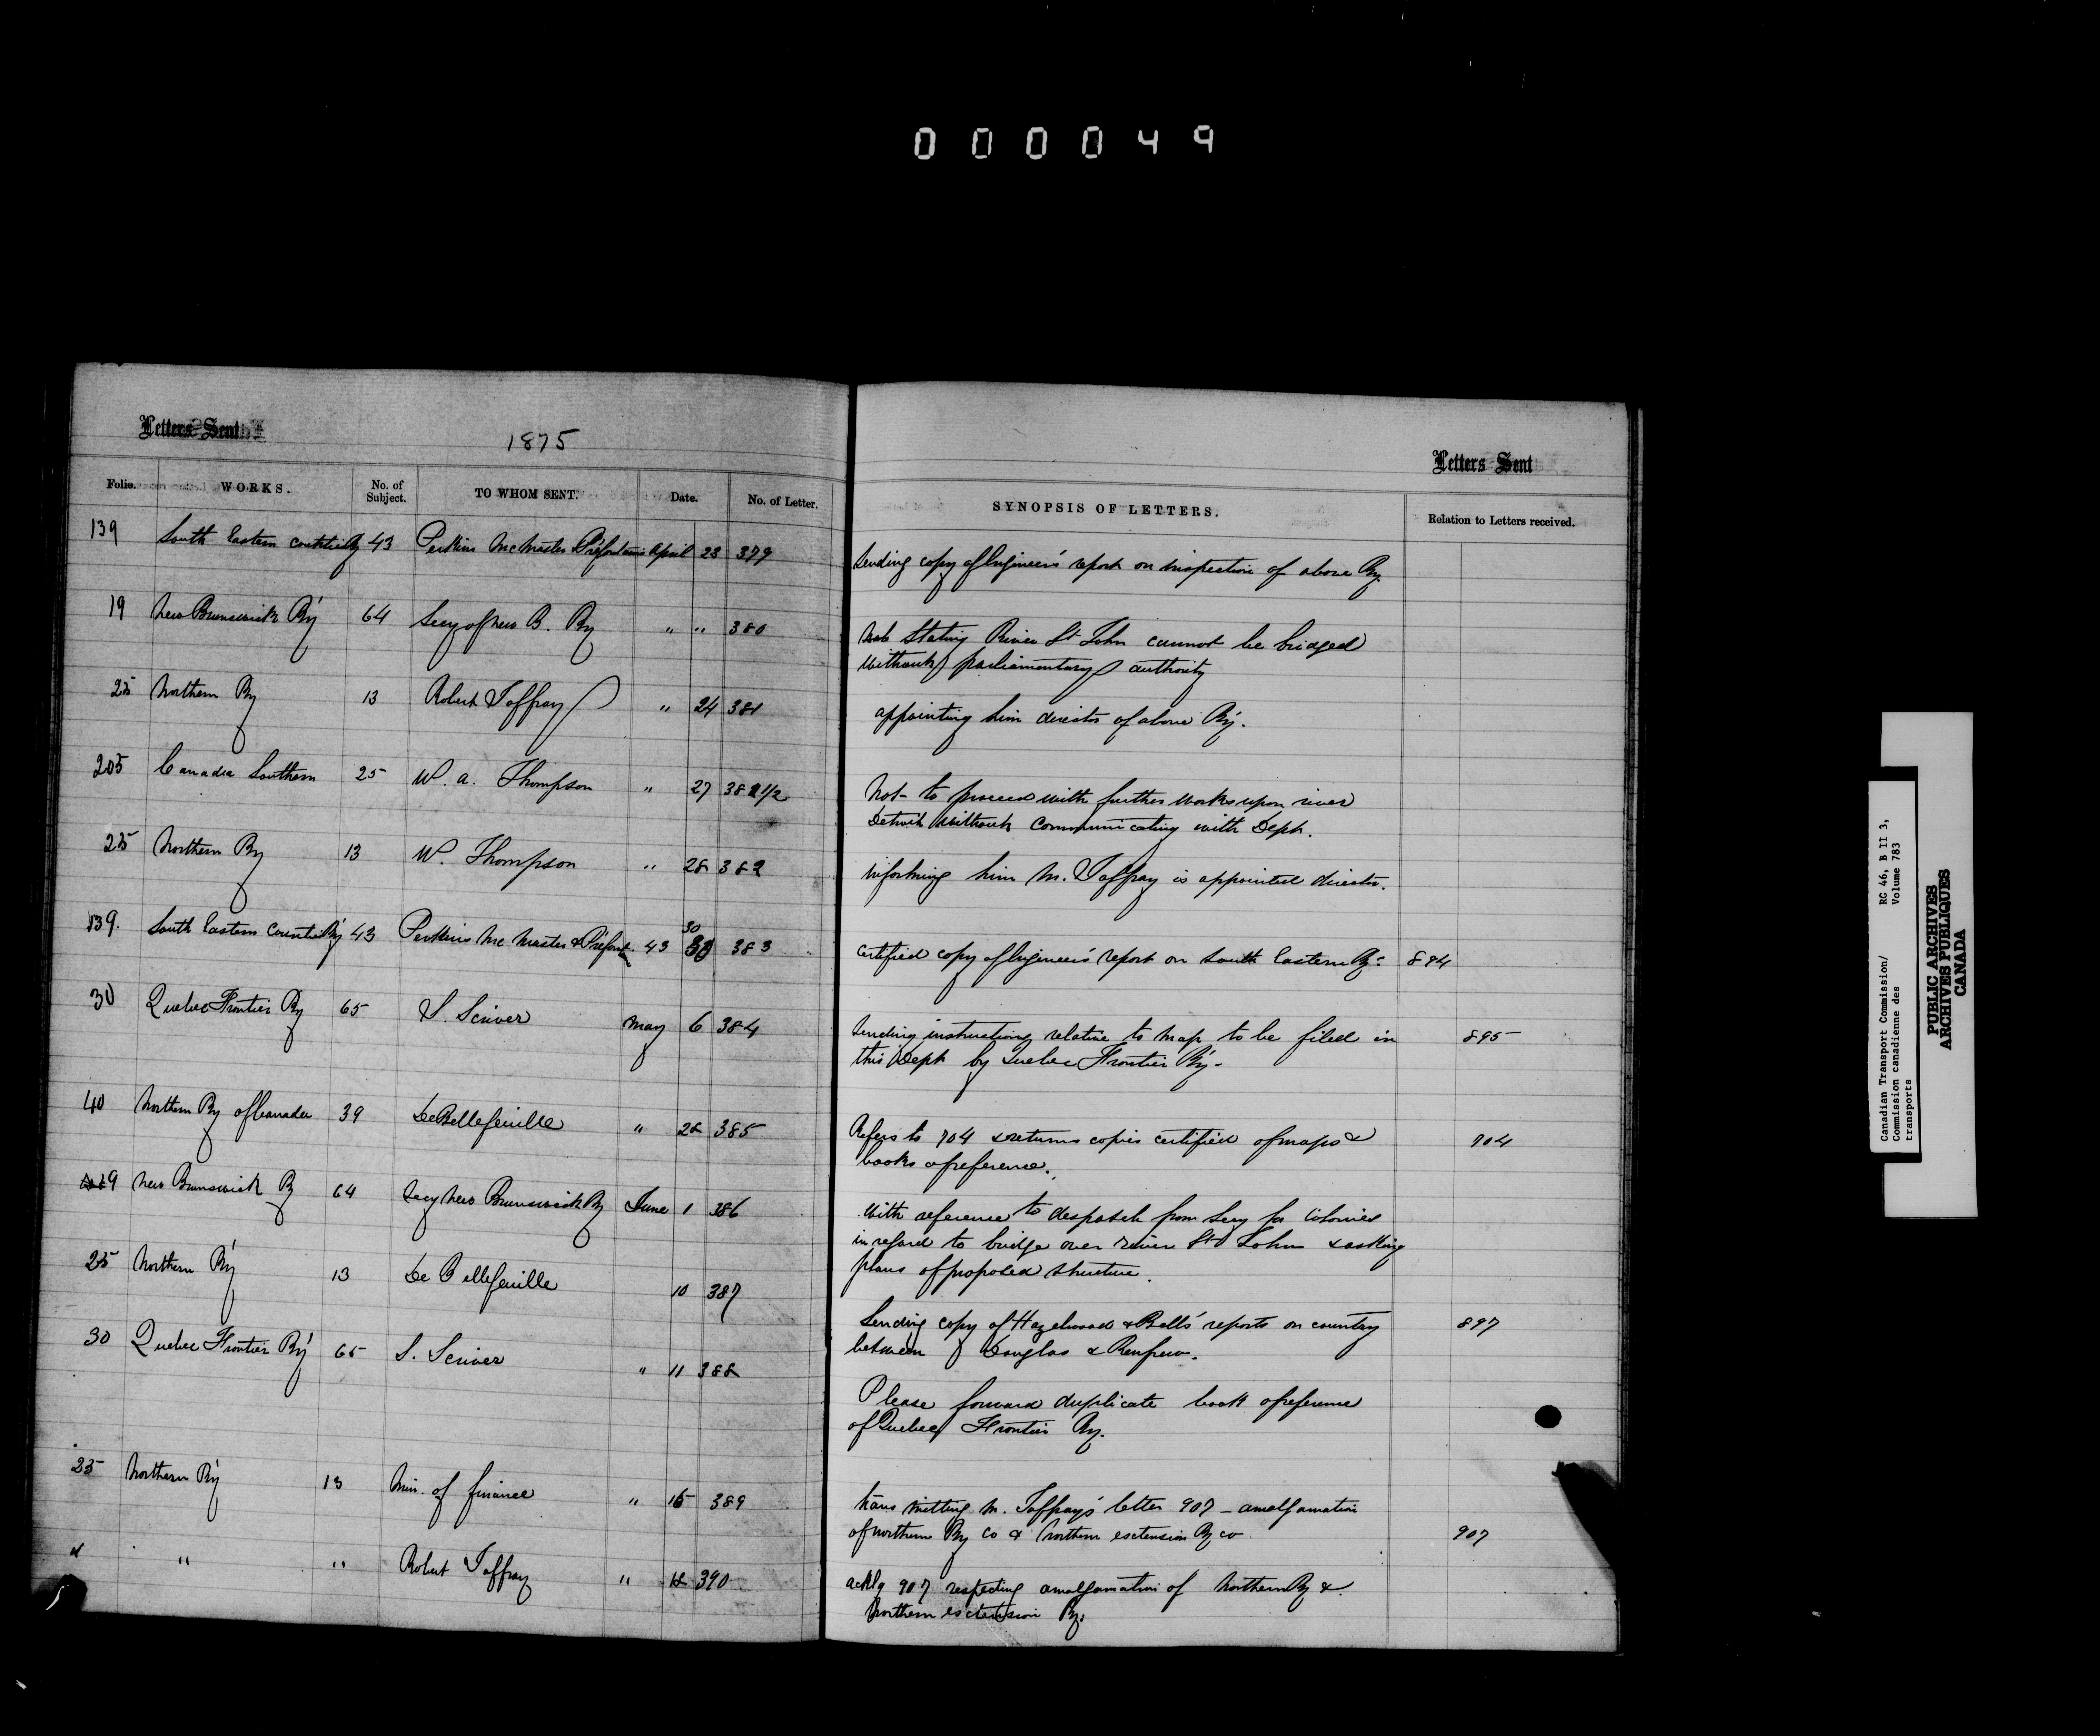 000049
Letters Sent
1875
Letters Sent
Folio. WORKS. No. of Subject. TO WHOM SENT. Date. No. of Letter. SYNOPSIS OF LETTERS. Relation to Letters received.
139 South Eastern Counties Ry 43 Perkins McMaster & Préfontaine April 23 379 Sending copy of Engineer's report on inspection of above Ry.
19 New Brunswick Ry 64 Secy of New B. Ry " " 380 stating River St John cannot be bridged
without parliamentary authority
25 Northern Ry 13 Robert Jaffray " 24 381 appointing him director of above Ry.
205 Canada Southern 25 W. A. Thompson " 27 381 1/2 Not to proceed with further works upon river
Detroit without communicating with Dept.
25 Northern Ry 13 W. Thompson " 28 382 informing him M. Jaffray is appointed director.
139. South Eastern Counties Ry 43 Perkins McMaster & Préfontaine 43 30 383 Certified copy of Engineer's report on South Eastern Ry. 894
30 Quebec Frontier Ry 65 S. Scriver May 6 384 Sending instructions relative to map to be filed in 895
this Dept by Quebec Frontier Ry-
40 Northern Ry of Canada 39 De Bellefeuille " 28 385 Refers to 704 & returns copies certified of maps & 704
books of reference.
19 New Brunswick Ry 64 Secy New Brunswick Ry June 1 386 With reference to despatch from Secy for Colonies
in regard to bridge over river St John & asking
plans of proposed structure.
25 Northern Ry 13 De Bellefeuille 10 387 Sending copy of Hazelwood & Bell's reports on country 897
between Douglas & Renfrew.
30 Quebec Frontier Ry 65 S. Scriver " 11 388 Please forward duplicate book of reference
of Quebec Frontier Ry.
25 Northern Ry 13 Min. of finance " 15 389 transmitting M. Jaffray's letter 907 - amalgamation
of northern Ry Co & Northern extension Ry co 907
" " " Robert Jaffray " 390 acklg 907 respecting amalgamation of Northern Ry &
Northern extension Ry.
Canadian Transport Commission/
Commission canadienne des
transports
RG 46, B II 3,
Volume 783
PUBLIC ARCHIVES
ARCHIVES PUBLIQUES
CANADA